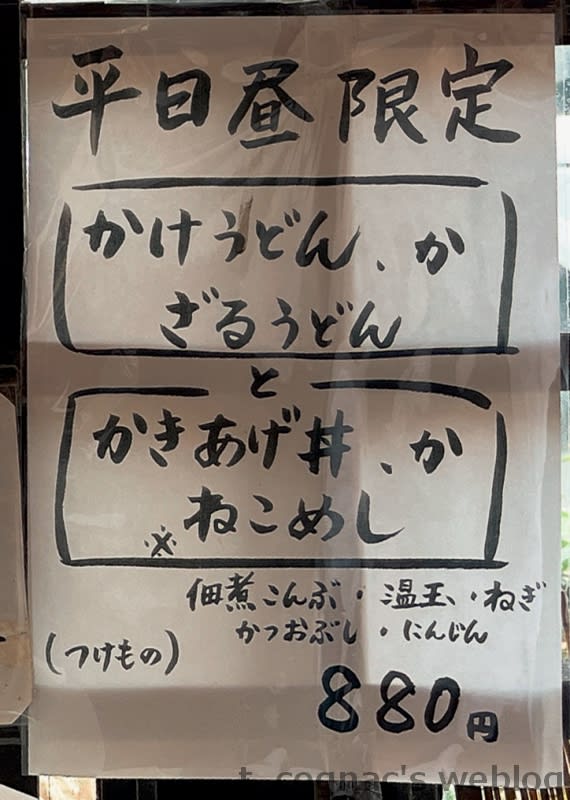 平日昼限定
かけうどん、か
ざるうどん
と
かきあげ丼、か
※ねこめし
佃煮こんぶ・温玉・ねぎ
かつおぶし・にんじん
(つけもの)
880円
t_cognac's weblog